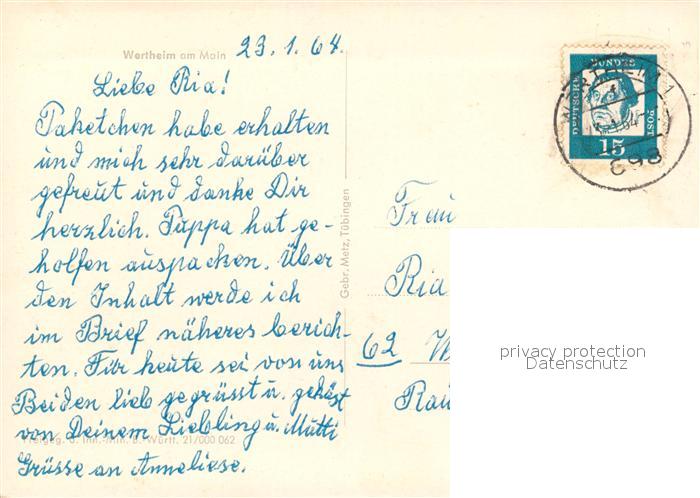 Wertheim am Main 23.1.64.
Liebe Ria!
Paketchen habe erhalten
und mich sehr darüber
gefreut und danke Dir
herzlich. Puppa hat ge-
holfen auspacken. Über
den Inhalt werde ich
im Brief näheres berich-
ten. Für heute sei von uns
Beiden lieb gegrüsst u. geküsst
von Deinem Liebling u. Mutti
Grüsse an Anneliese.
Freigeg. d. Inn.-Min. B.-Württ. 21/000 062
Gebr. Metz, Tübingen
DEUTSCHE BUNDESPOST
15
898
Frau
Ria
62 W
Rau
privacy protection
Datenschutz